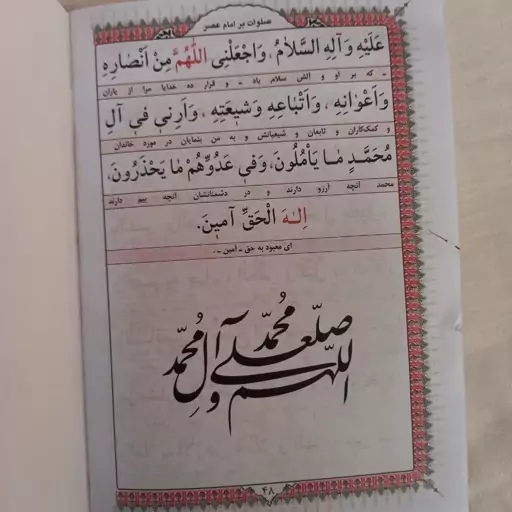 صلوات بر امام عصر
عَلَیْهِ وَآلِهِ السَّلَامُ، وَاجْعَلْنِی اللَّهُمَّ مِنْ أَنْصَارِهِ
- که بر او و آتش سلام باد - و قرار ده خدایا مرا از یاران
وَأَعْوَانِهِ، وَأَتْبَاعِهِ وَشِیعَتِهِ، وَأَرِنِی فِی آلِ
و کمک‌کاران و تابعان و شیعیانش و به من بنمایان در مورد خاندان
مُحَمَّدٍ مَا یَأْمُلُونَ، وَفِی عَدُوِّهِمْ مَا یَحْذَرُونَ،
محمد آنچه آرزو دارند و در دشمنانشان آنچه بیم دارند
إِلَهَ الْحَقِّ آمِینَ.
ای معبود به حق - آمین - .
اللّهم صلّ علی محمّد وآل محمّد
۴۸